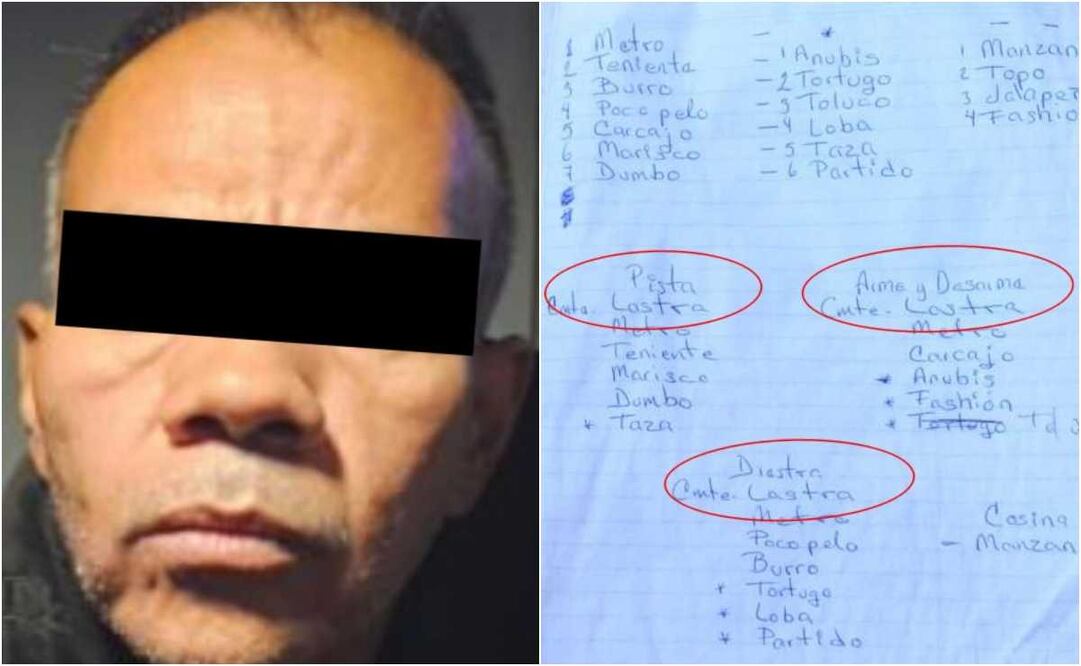 1 Metro
2 Tenienta
3 Burro
4 Pocopelo
5 Carcajo
6 Marisco
7 Dumbo
8
9
*
- 1 Anubis
- 2 Tortugo
- 3 Toluco
- 4 Loba
- 5 Taza
- 6 Partido
1 Manzan
2 Topo
3 Jalaper
4 Fashio
Pista
Cmta. Lastra
Metro
Teniente
Marisco
Dumbo
* Taza
Arme y Desarme
Cmte. Lastra
Metro
Carcajo
* Anubis
* Fashión
* Tortugo
Diestra
Cmte. Lastra
Metro
Pocopelo
Burro
* Tortugo
* Loba
* Partido
Cosina
- Manzan